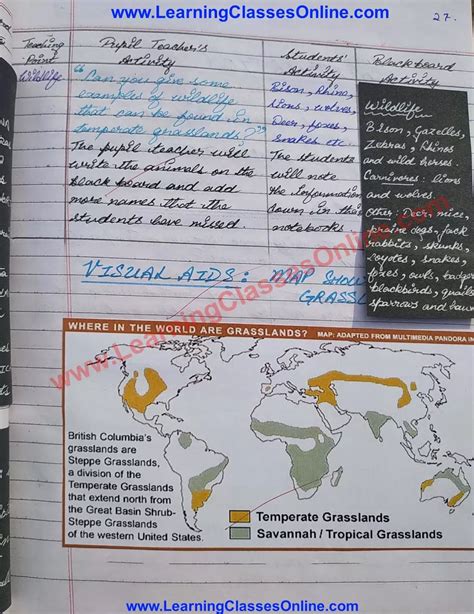 www.LearningClassesOnline.com
27.
Teaching Point
Pupil Teacher's Activity
Students' Activity
Blackboard Activity
Wildlife
"Can you give some
examples of wildlife
that can be found in
temperate grasslands?"
The pupil teacher will
write the animals on the
black board and add
more names that the
students have missed.
Bison, Rhino,
Lions, wolves,
Deer, foxes,
Snakes etc.
The students
will note
the Information
down in their
notebooks.
Wildlife
Bison, Gazelles,
Zebras, Rhinos
and wild horses.
Carnivores: Lions
and wolves
Other: Deer, mice,
prairie dogs, jack
rabbits, skunks
coyotes, snakes,
foxes, owls, badger
blackbirds, quails
sparrows and haw
www.LearningClassesOnline.com
VISUAL AIDS: MAP SHOW
GRASSL
WHERE IN THE WORLD ARE GRASSLANDS? MAP: ADAPTED FROM MULTIMEDIA PANDORA IN
British Columbia's
grasslands are
Steppe Grasslands,
a division of the
Temperate Grasslands
that extend north from
the Great Basin Shrub-
Steppe Grasslands
of the western United States.
Temperate Grasslands
Savannah / Tropical Grasslands
www.LearningClassesOnline.com